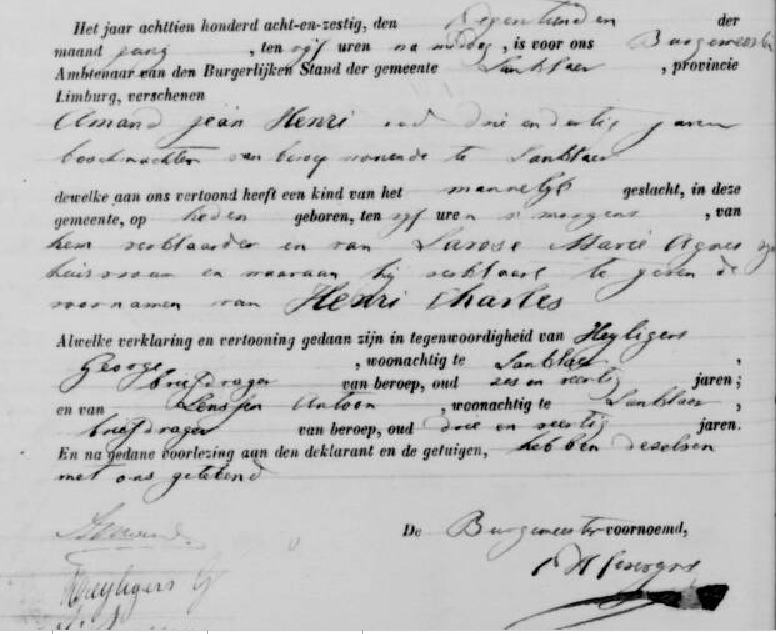 Het jaar achttien honderd acht-en-zestig, den Negentienden der
maand juny , ten vyf uren na middag , is voor ons Burgemeester
Ambtenaar van den Burgerlijken Stand der gemeente Lanklaer , provincie
Limburg, verschenen
Amand jean Henri oud drie en dertig jaren
boschwachter van beroep wonende te Lanklaer
dewelke aan ons vertoond heeft een kind van het mannelyk geslacht, in deze
gemeente, op heden geboren, ten vyf uren s morgens , van
hem verklaarder en van Larose Marie Agnes zyn
huisvrouw en waaraan hij verklaert te geven de
voornamen van Henri Charles
Alwelke verklaring en vertooning gedaan zijn in tegenwoordigheid van Heyligers
George , woonachtig te Lanklaer ,
briefdrager van beroep, oud zes en veertig jaren ;
en van Lenssen Antoon , woonachtig te Lanklaer ,
briefdrager van beroep, oud drie en veertig jaren.
En na gedane voorlezing aan den deklarant en de getuigen, hebben dezelven
met ons getekend
De Burgmeester voornoemd,
Amand
Heyligers G